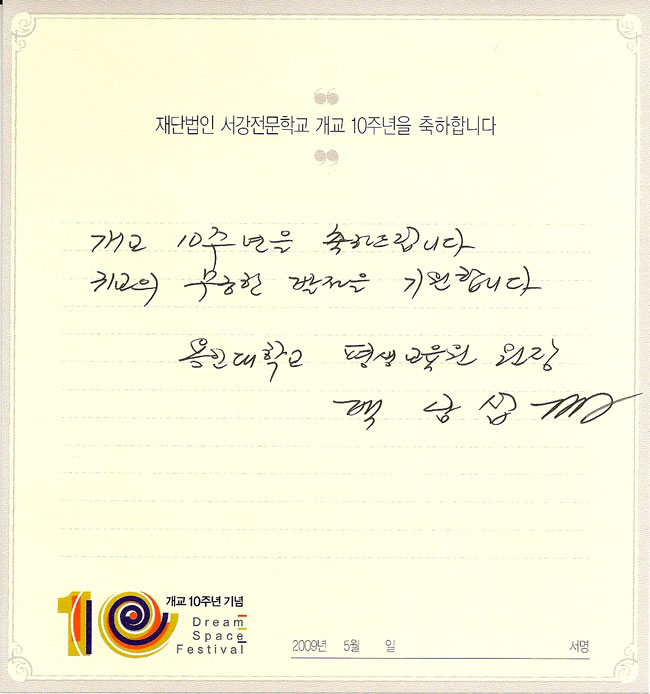 재단법인 서강전문학교 개교 10주년을 축하합니다
개교 10주년을 축하드립니다
귀교의 무궁한 발전을 기원합니다
용인대학교 평생교육원 원장
백 남 섭
10 개교 10주년 기념
Dream
Space
Festival
2009년 5월 일 서명